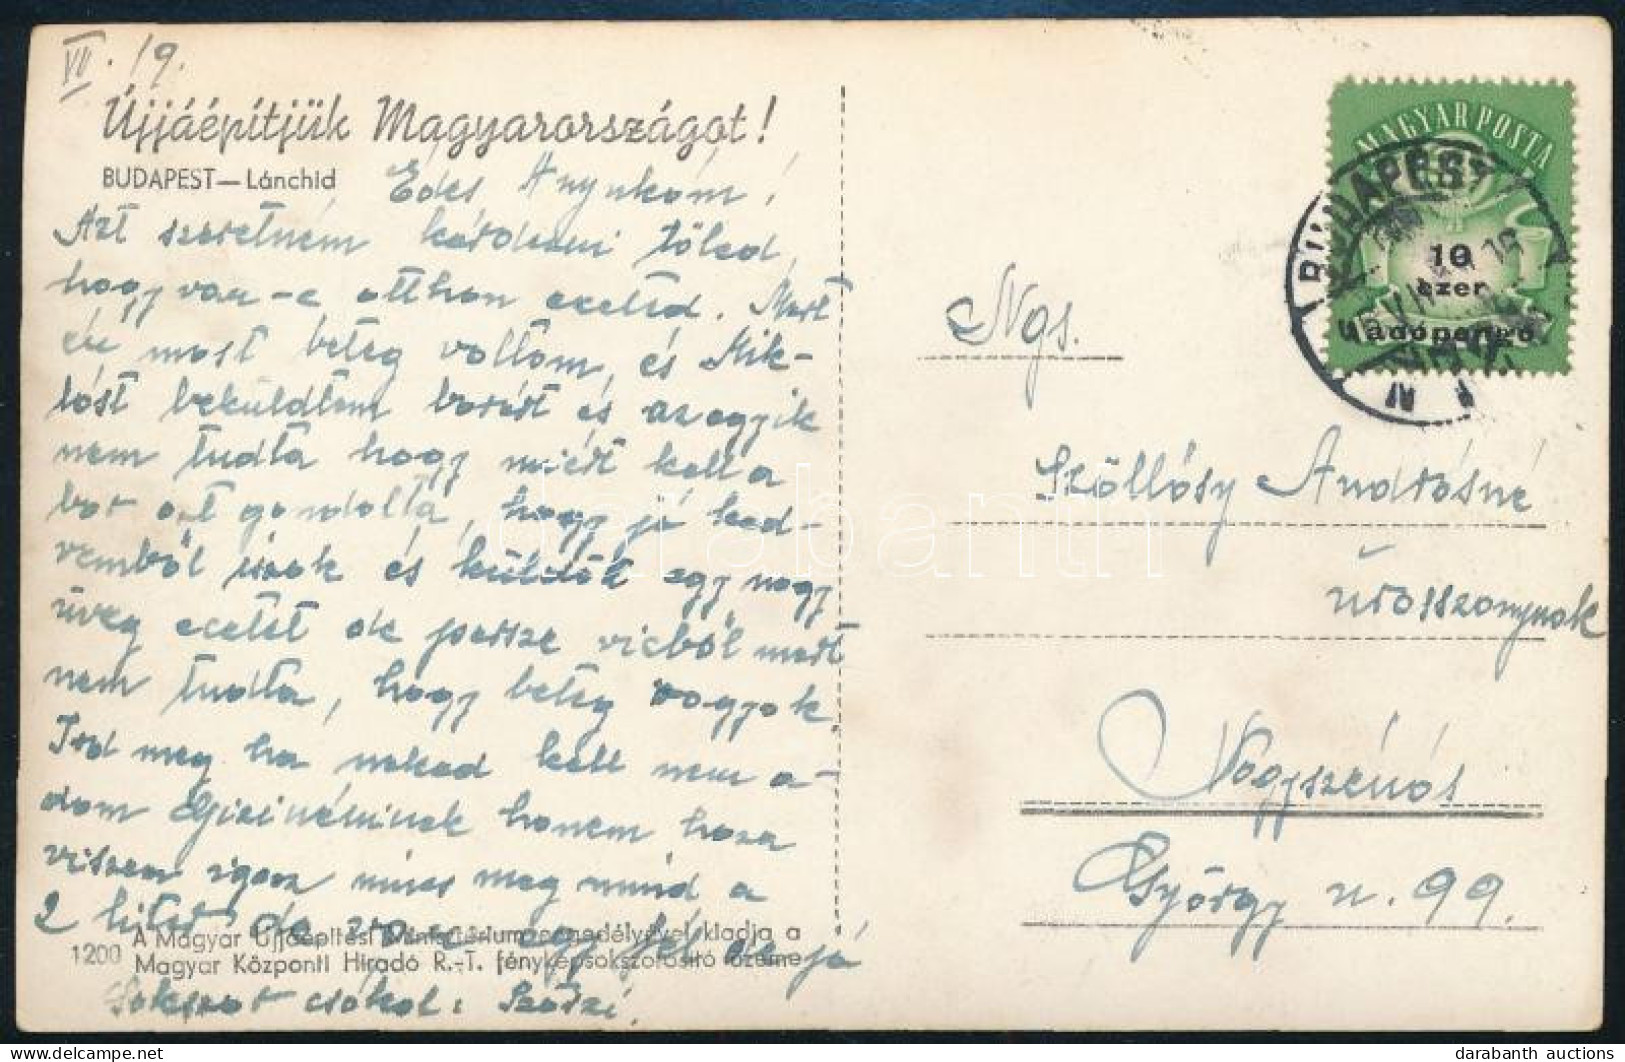 VII. 19.
Újjáépítjük Magyarországot!
BUDAPEST—Lánchíd
Édes Anyukám!
Azt szeretném kérdezni Tőled,
hogy van-e otthon eceted. Mert
én most beteg voltam, és Mik-
lóst beküldtem borért és az egyik
nem tudta hogy miért kell a
bor azt gondolta, hogy jó ked-
vemből iszok és küldtek egy nagy
üveg ecetet de persze vicből mert
nem tudta, hogy beteg vagyok.
Írd meg ha neked kell nem a-
dom Gizinéninek hanem haza
viszem igaz nincs meg mind a
2 liter de
1200 A Magyar Újjáépítési Minisztérium engedélyével kiadja a
Magyar Központi Hiradó R.-T. fényképsokszorosító üzeme
jó
Sokszor csókol: Szöszi.
MAGYAR POSTA
10
ezer
adópengő
BUDAPEST
Ngs.
Szőllősy Andrásné
úrasszonynak
Nagyszénás
György u. 99.
darabanth
delcampe.net
darabanth auctions